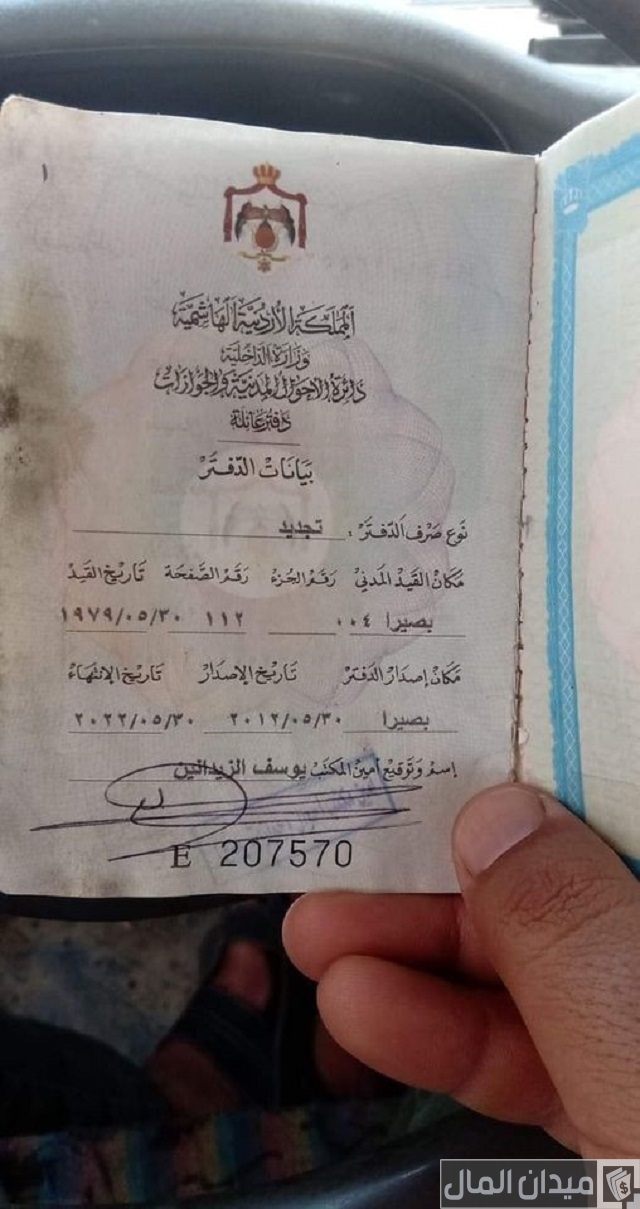 المملكة الأردنية الهاشمية
وزارة الداخلية
دائرة الأحوال المدنية والجوازات
دفتر عائلة
بيانات الدفتر
نوع صرف الدفتر : تجديد
مكان القيد المدني رقم الجزء رقم الصفحة تاريخ القيد
بصيرا ٠٠٤ ١١٢ ١٩٧٩/٠٥/٣٠
مكان إصدار الدفتر تاريخ الإصدار تاريخ الإنتهاء
بصيرا ٢٠١٢/٠٥/٣٠ ٢٠٢٢/٠٥/٣٠
إسم وتوقيع أمين المكتب يوسف الزيدانين
E 207570
ميدان المال